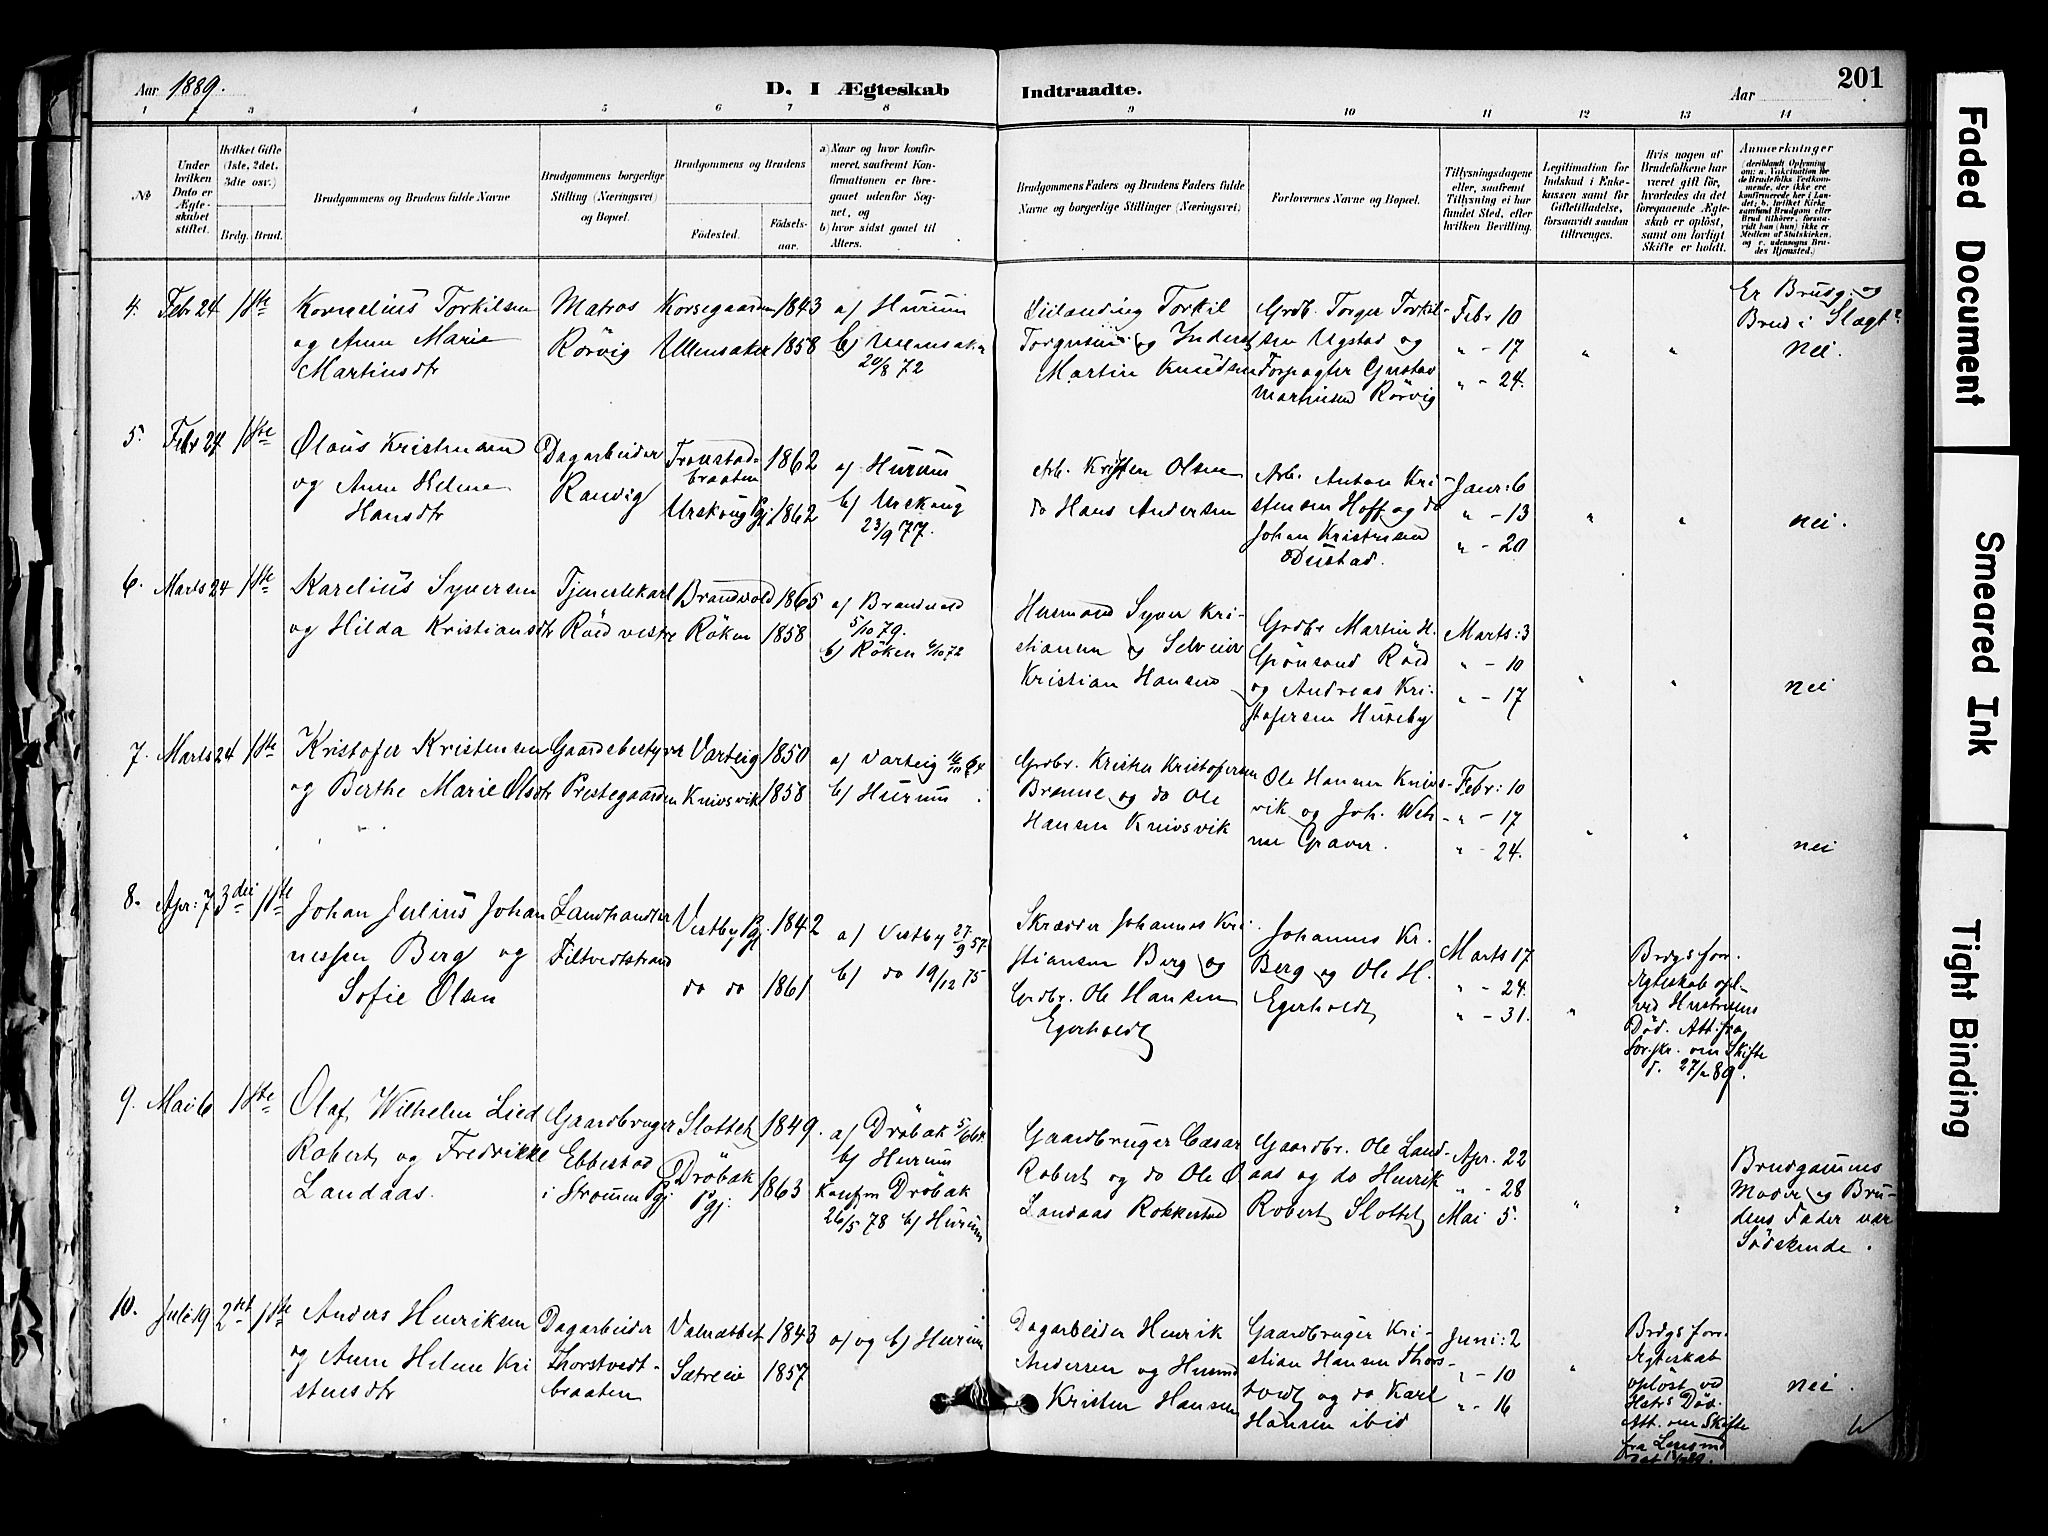 Aar 1889.
D. I Ægteskab
Indtraadte.
Aar
201
1 2 3 4 5 6 7 8 9 10 11 12 13 14
No
Under hvilken Dato er Ægteskabet stiftet.
Hvilket Gifte (1ste, 2det, 3dte osv.)
Brdg. Brud.
Brudgommens og Brudens fulde Navne
Brudgommens borgerlige Stilling (Næringsvei) og Bopæl.
Brudgommens og Brudens
Fødested.
Fødselsaar.
a) Naar og hvor konfirmeret, saafremt Konfirmationen er foregaaet udenfor Sognet, og
b) hvor sidst gaaet til Alters.
Brudgommens Faders og Brudens Faders fulde Navne og borgerlige Stillinger (Næringsvei)
Forlovernes Navne og Bopæl.
Tillysningsdagene eller, saafremt Tillysning ei har fundet Sted, efter hvilken Bevilling.
Legitimation for Indskud i Enkekassen samt for Giftetilladelse, forsaavidt saadan tiltrænges.
Hvis nogen af Brudefolkene har været gift før, hvorledes da det foregaaende Ægteskab er opløst, samt om lovligt Skifte er holdt.
Anmærkninger
4. Febr 24 1ste
Kornelius Torkilsen
og Anne Marie
Martinsdtr
Matros
Rörvig
Korsegaarden 1843
Ullensaker 1858
a) Hurum
b) Ullensaker
20/8 72
Torkil
Torgersen og Inderst
Martin Knudsen
Grdb. Torger Torkil-
sen Ugstad og
Forpagter Gustav
Martinsen Rörvig
Febr 10
" - 17
" - 24.
Er Brudg. og
Brud i Slægt?
Nei.
5. Febr 24 1ste
Olaus Kristensen
og Anne Helene
Hansdtr
Dagarbeider
Ranvig
Tronstad-
braaten 1862
Urskoug Pgj. 1862
a) Hurum
b) Urskoug
23/9 77.
Arb. Kristen Olsen
do Hans Andersen
Arb. Anton Kri-
stensen Hoff og do
Johan Kristensen
Dústad.
Janr: 6
" - 13
" - 20
nei.
6. Marts 24 1ste
Karelius Syversen
og Hilda Kristiansdtr
Tjenestekarl
Röed vestre
Brandvold 1865
Röken 1858
a) Brandvold
5/10 79.
b) Röken 6/10 72
Husmand Syver Kri-
stiansen og Selveier
Kristian Hansen
Grdbr Martin H.
Grönsand Röed
og Andreas Kri-
stofersen Huseby
Marts: 3
" - 10
" - 17
nei
7. Marts 24 1ste
Kristofer Kristensen
og Berthe Marie Olsdtr
Gaardsbestyrer
Prestegaarden
Varteig 1850
Knivsvik 1858
a) Varteig
b) Hurum
Grdbr. Kristen Kristofersen
Brenne og do Ole
Hansen Knivsvik
Ole Hansen Knivs-
vik og Joh. Weh-
ne Graver.
Febr: 10
" - 17
" - 24.
nei
8. Apr: 7 3die 1ste
Johan Julius Johan
nessen Berg og
Sofie Olsen
Landhandler
Filtvedtstrand
Vestby Pgj. 1842
do do 1861
a) Vestby 27/9 57
b) do 19/12 75
Skrædder Johannes Kri-
stiansen Berg og
Grdbr. Ole Hansen
Egerholdt
Johannes Kr.
Berg og Ole H.
Egerholdt
Marts 17
" - 24.
" - 31.
Brdgs forr.
Ægteskab opl.
ved Hustruens
Död. Att. fra
Sor.skr. om Skifte
d. 27/2 89.
9. Mai 6 1ste
Olaf Wilhelm Lied
Robert og Fredrikke
Landaas.
Gaardbruger
Ebbestad
i Strømm Pgj
Slottet 1849.
Dröbak
Pgj. 1863
a) Dröbak
b) Hurum
Konf. Dröbak
26/5 78 b) Hurum
Gaardbruger Cæsar
Robert og do Ole Ø
Landaas Rokkestad
Gaardbr. Ole Land-
aas og do Henrik
Robert Slottet
Apr. 22
" - 28
Mai 5.
Brudgommens
Moder og Bru-
dens Fader var
Södskende.
10. Juli 19 2det 1ste
Anders Henriksen
og Anne Helene Kri
stensdtr
Dagarbeider
Thorstvedt-
braaten
1843
Sætreeie 1857
a) og b) Hurum
Dagarbeider Henrik
Andersen og Husmd
Kristen Hansen
Gaardbruger Kri-
stian Hansen Thors-
tvedt og do Karl
Hansen ibid
Juni: 2
" - 10
" - 16
Brdgs forr.
Ægteskab
oplöst ved
Hstrs Död.
Att. om Skifte
fra Lensmd
nei.
Faded Document
Smeared Ink
Tight Binding